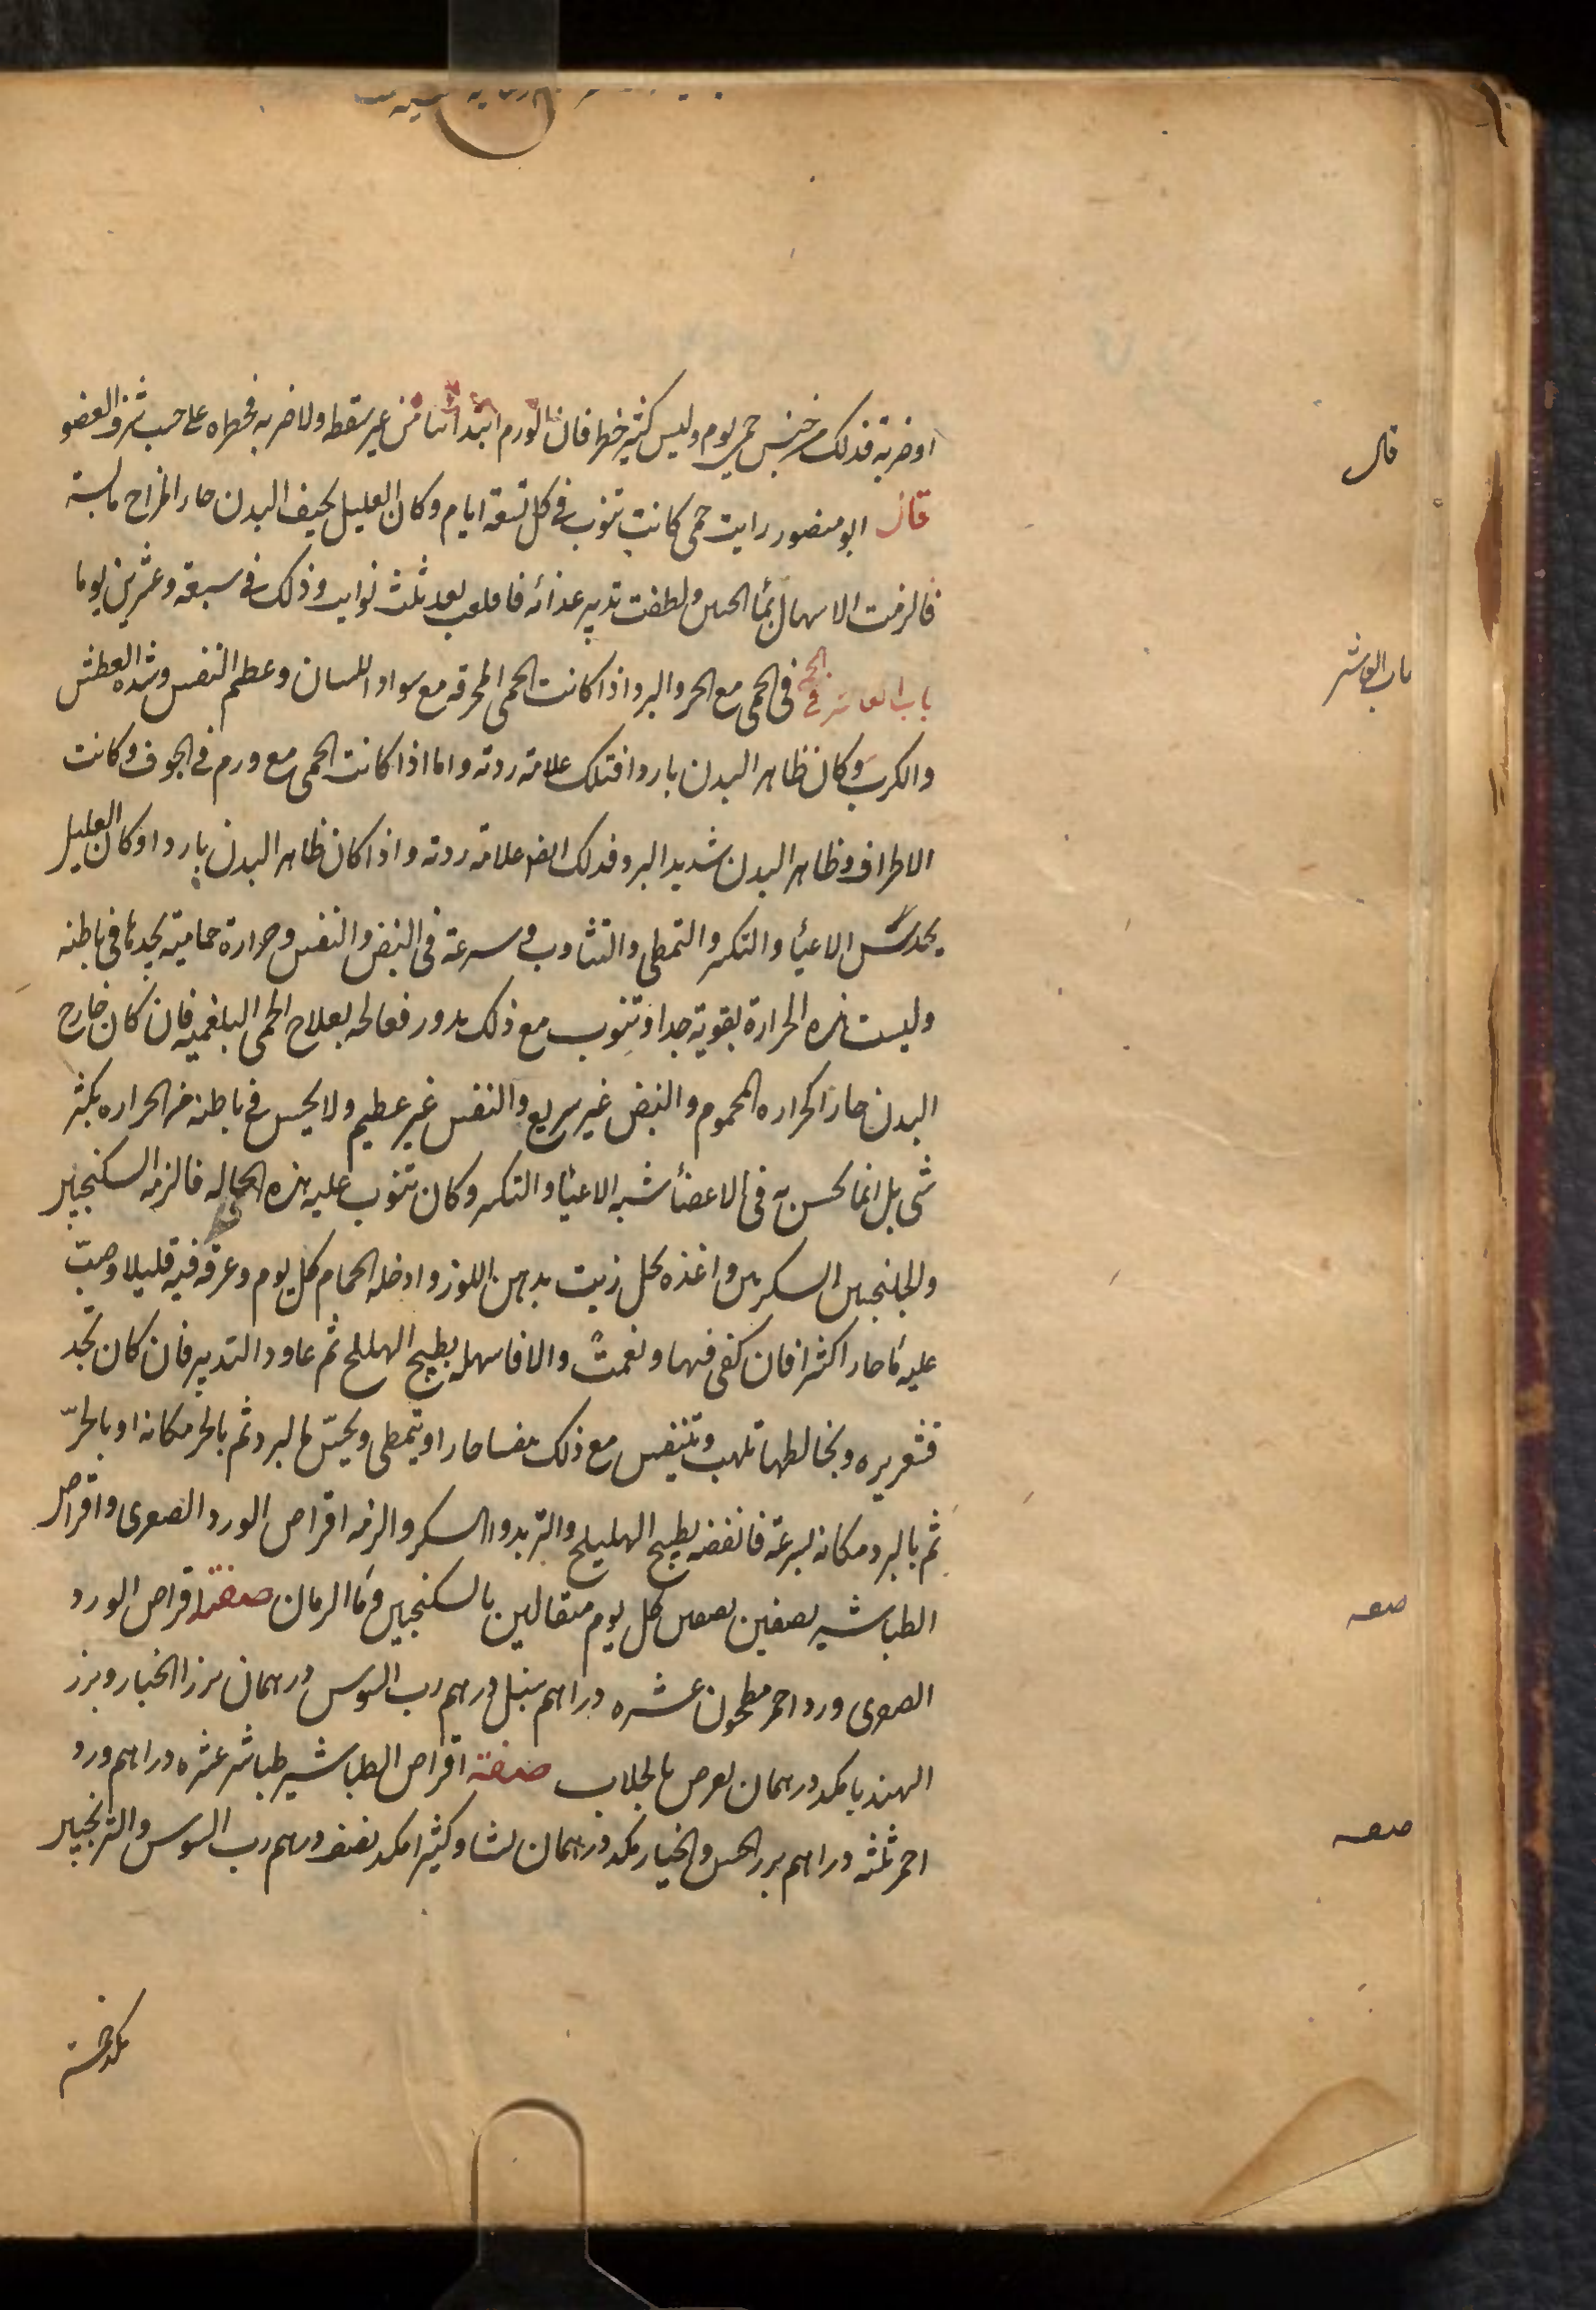 او ضربة فذلك من جنس حمى يوم وليس كثير خطر فان كان الورم ابتدا من غير سقطه ولا ضربه فخطراه على حسب شرف العضو
قال ابو منصور رايت حمى كانت تنوب فى كل تسعة ايام وكان العليل نحيف البدن حار المزاج يابسة
فالزمت الاسهال بماء الجبن ولطفت تدبير غذائه فاقلعت بعد ثلث نوايب وذلك فى سبعة وعشرين يوما
باب العاشر فى الحمى مع الحر والبرد اذا كانت الحمى المحرقه مع سواد اللسان وعظم النفس وشده العطش
والكرب وكان ظاهر البدن باردا فتلك علامة رديه واما اذا كانت الحمى مع ورم فى الجوف وكانت
الاطراف وظاهر البدن شديد البرد فذلك ايضا علامة رديه واذا كان ظاهر البدن باردا وكان العليل
يجد مس الاعياء والتكسر والتمطى والتثاوب وسرعة فى النبض والنفس وحرارة حمامية يجدها فى باطنه
وليست هذه الحرارة بقوية جدا وتنوب مع ذلك بدور فعالجه بعلاج الحمى البلغميه فان كان خارج
البدن حارا كحراره المحموم والنبض غير سريع والنفس غير عظيم ولا يحس فى باطنه من الحراره بكثير
شى بل انما يحس به فى الاعضاء شبه الاعياء والتكسر وكان تنوب عليه هذه الحاله فالزمه السكنجبين
والجلنجبين السكريين واغذه بخل زيت بدهن اللوز وادخله الحمام كل يوم وعرقه فيه قليلا وصب
عليه ماء حارا كثيرا فان كفى فبها ونعمت والا فاسهله بطبيخ الهليلج ثم عاود التدبير فان كان تجد
قشعريره ويخالطها تلهب وتتنفس مع ذلك نفسا حارا ويتمطى ويحس بالبرد ثم بالحر مكانه او بالحر
ثم بالبرد مكانه بسرعة فانفضه بطبيخ الهليلج والتربد والسكر والزمه اقراص الورد الصغرى واقراص
الطباشير نصفين نصفين كل يوم مثقالين بالسكنجبين وماء الرمان صفة اقراص الورد
الصغرى ورد احمر مطحون عشره دراهم سنبل درهم رب السوس درهمان بزر الخيار وبزر
الهندبا مكد درهمان يقرص بالجلاب صفة اقراص الطباشير طباشير عشره دراهم ورد
احمر ثلثه دراهم بزر الخس والخيار مكد درهمان نشا وكثيرا مكد نصف درهم رب السوس والترنجبين
قال
باب العاشر
صفه
صفه